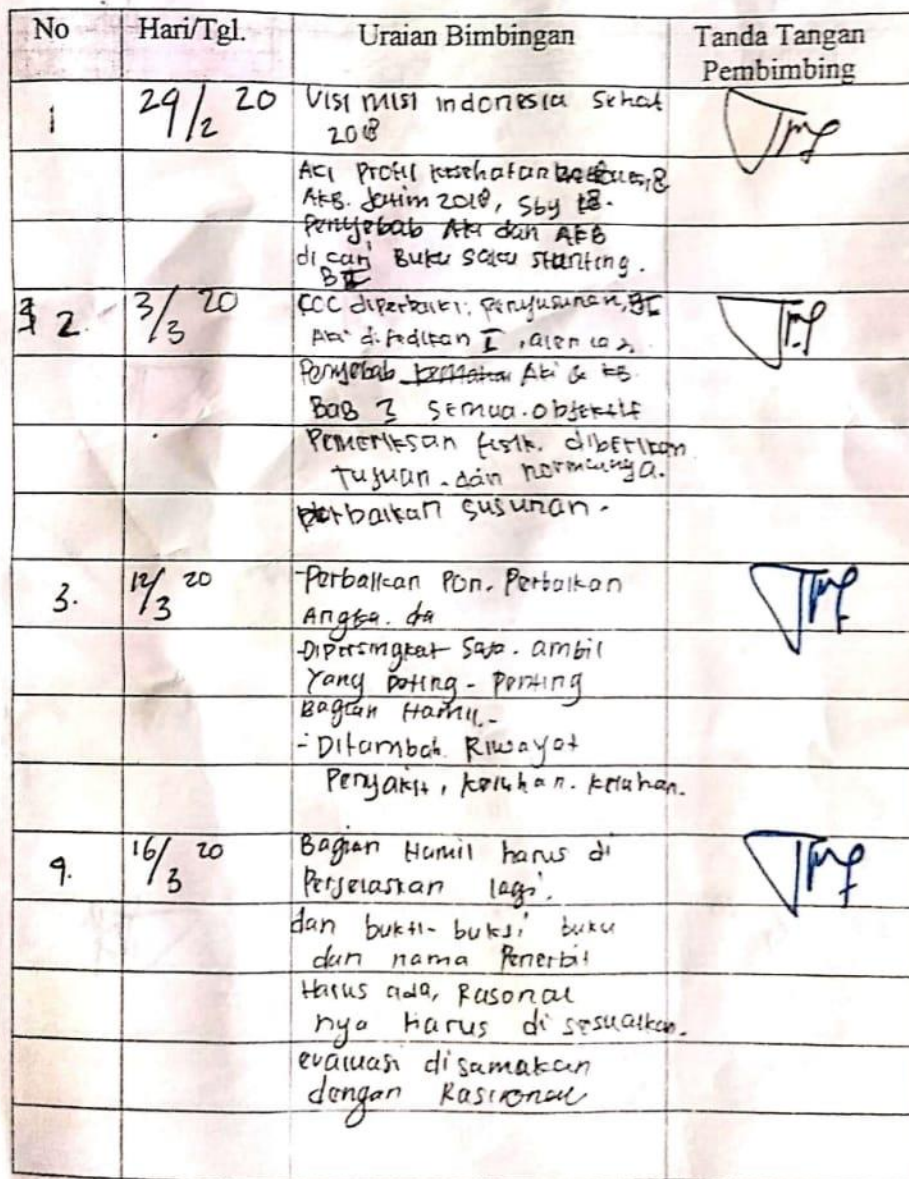 No Hari/Tgl. Uraian Bimbingan Tanda Tangan Pembimbing
1 29/2 20 Visi misi indonesia Sehat
2018
AKI Profil kesehatan
AKB. Jatim 2018, Sby 18.
Penyebab Aki dan AKB
di cari Buku saku stanting.
B II
2. 3/3 20 CCC diperbaiki, penyusunan,
Aki di jadikan I, alenia 2
Penyebab Aki &
BAB 3 semua objektif
Pemeriksan fisik. diberikan
tujuan. dan normalnya.
perbaikan susunan.
3. 12/3 20 -Perbaikan Pen. Perbaikan
Angka. da
-Dipersingkat Saja. ambil
Yang Poting - Penting
Bagian Hamil.-
- Ditambah Riwayat
Penyakit, keluhan. keluhan.
4. 16/3 20 Bagian Hamil harus di
Perjelaskan lagi.
dan bukti-bukti buku
dan nama Penerbit
Harus ada, Rasonal
nya Harus di sesuaikan.
evaluasi di samakan
dengan Rasional